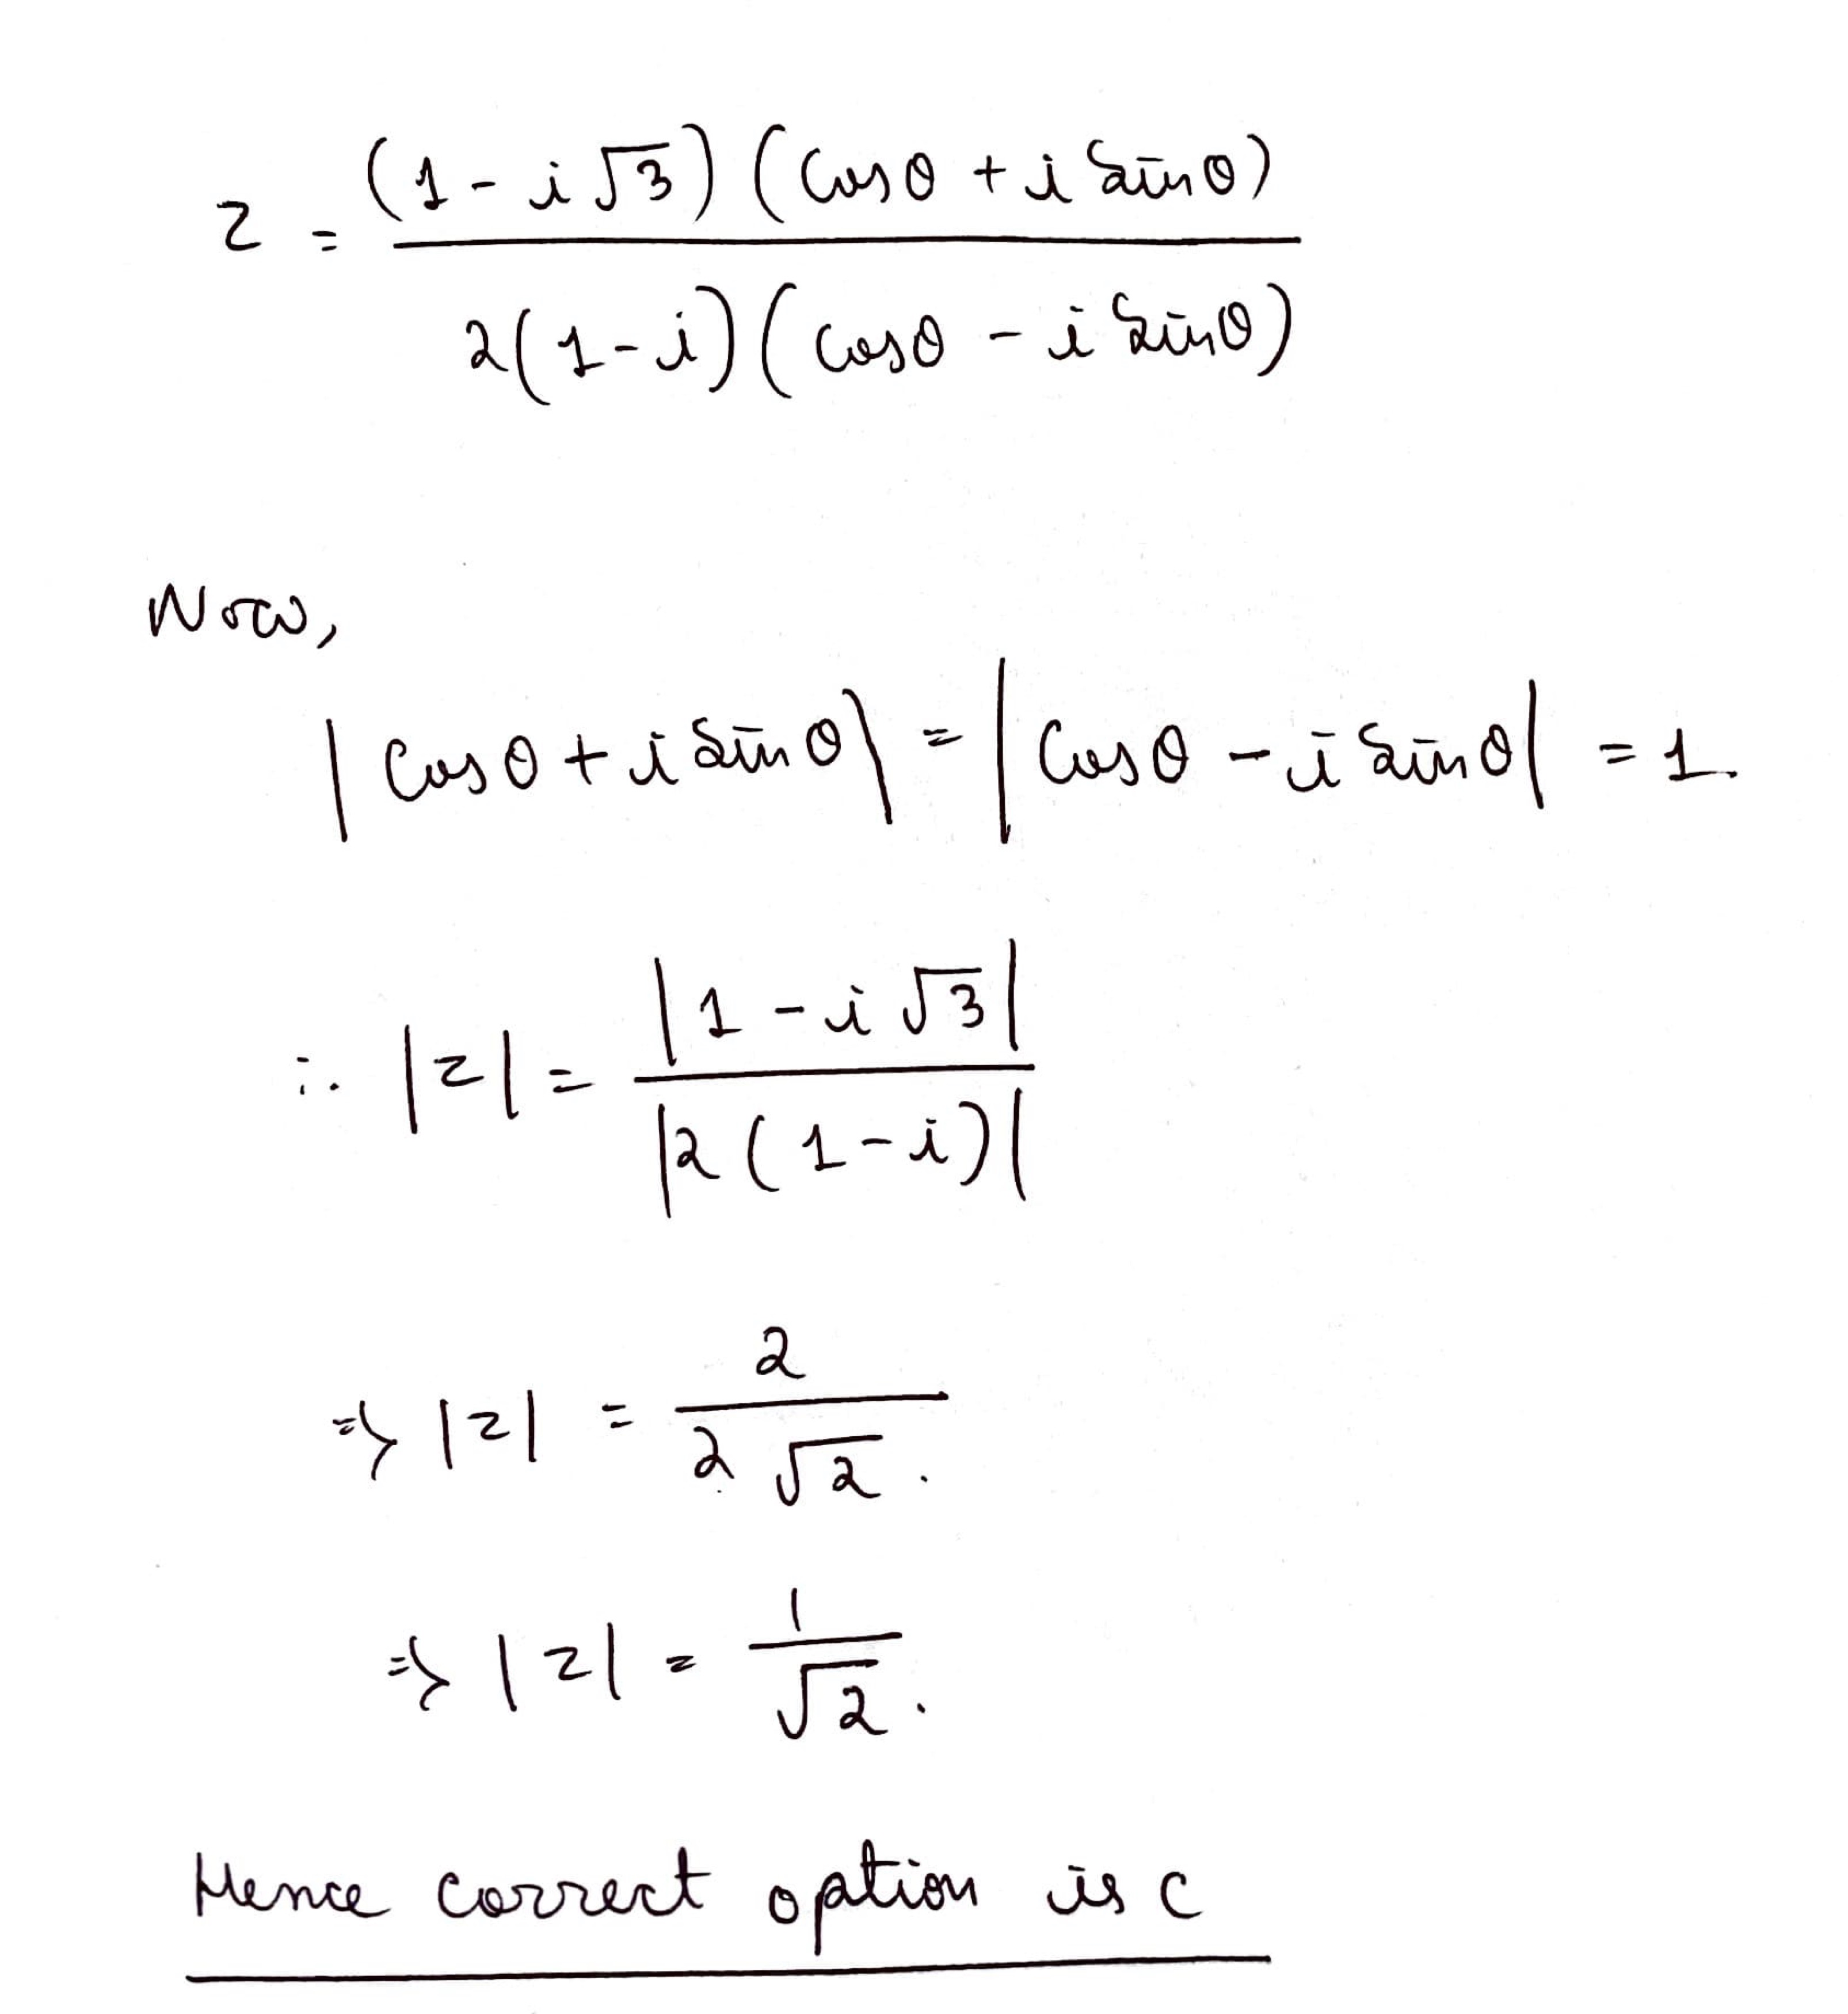 z = (1 - i√3) (cosθ + i sinθ) / 2(1-i) (cosθ - i sinθ)
Now,
|cosθ + i sinθ| = |cosθ - i sinθ| = 1.
∴ |z| = |1 - i√3| / |2(1-i)|
⇒ |z| = 2 / 2√2.
⇒ |z| = 1 / √2.
Hence correct option is c